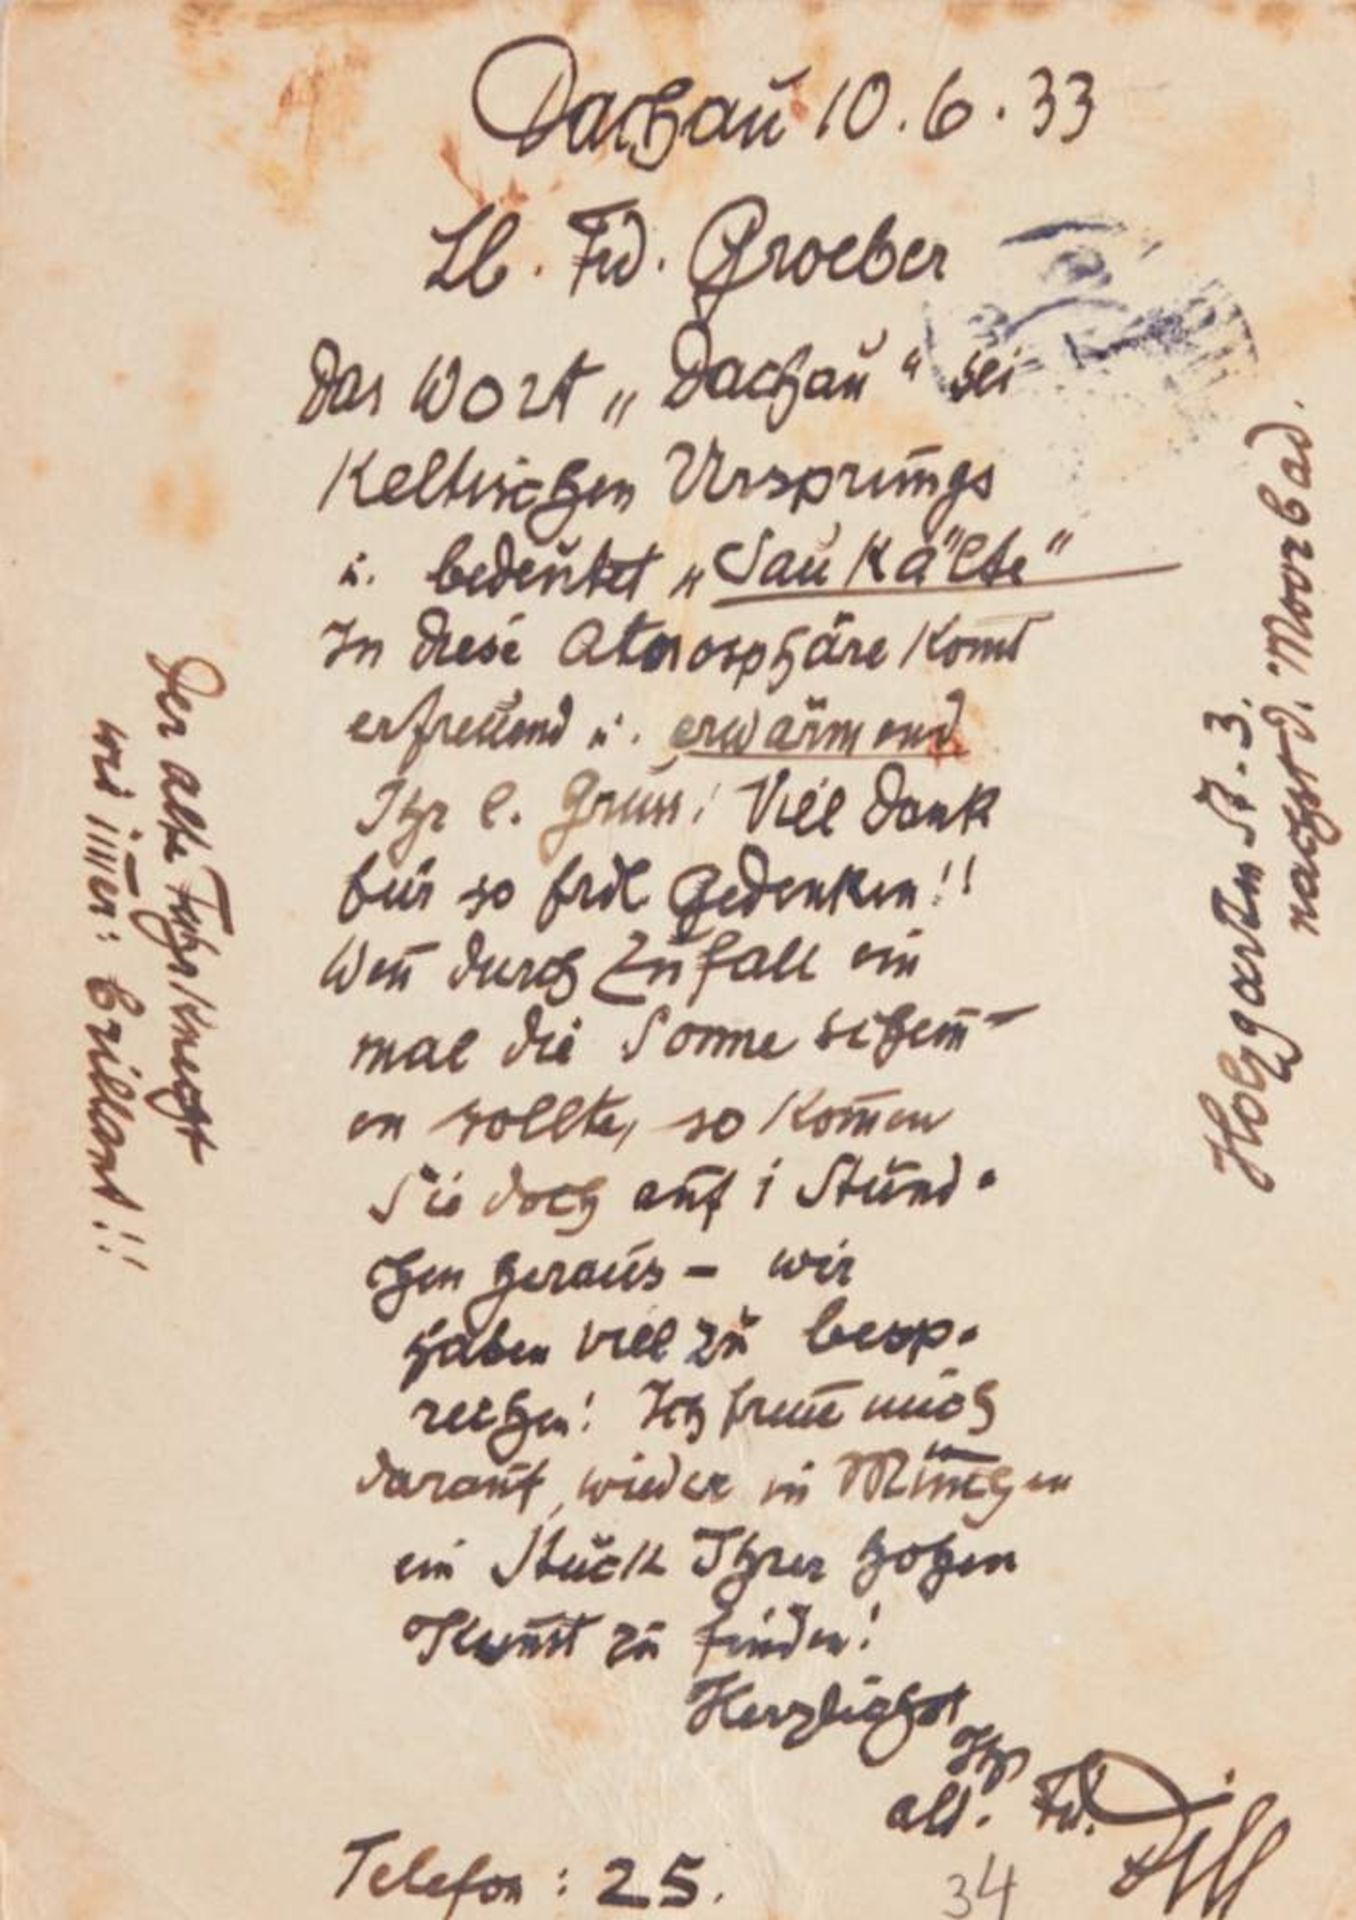 Dachau 10.6.33
Lb. Frd. Groeber
Das Wort „Dachau“ sei
Keltischen Ursprungs
u. bedeutet „Sau Kälte“
In diese Atmosphäre kom̄t
erfreuend u. erwärmend
Ihr l. Gruss! Viel Dank
für so frdl Gedenken!!
Wen̄ durch Zufall ein
mal die Sonne schein-
en sollte, so kom̄en
Sie doch auf 1 Stünd-
chen heraus – wir
haben viel zu besp-
rechen! Ich freue mich
darauf, wieder in München
ein Stück Ihrer hohen
Kunst zu finden!
Herzlichst
Ihr
alt. Frd. Dill
Telefon: 25.
34
Der alte Fuhrknecht
wie im̄er: Brillant!!
Holzgarten St. 3.
nächst d. Moorbad.